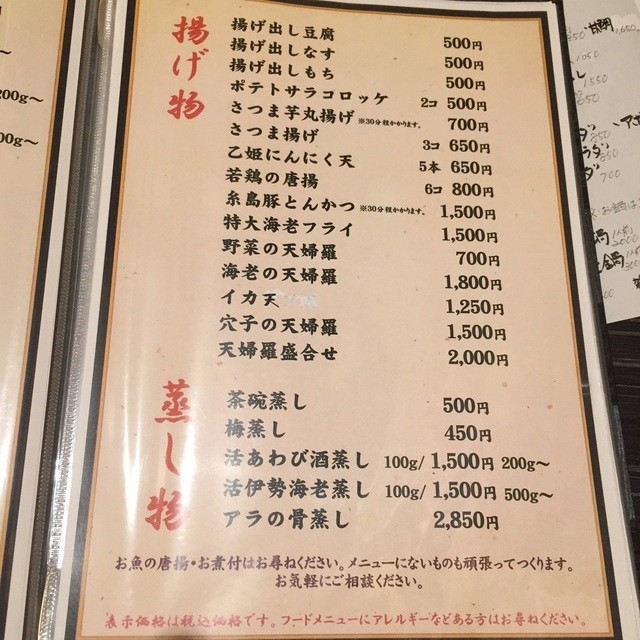 揚げ物
揚げ出し豆腐 500円
揚げ出しなす 500円
揚げ出しもち 500円
ポテトサラコロッケ 2コ 500円
さつま芋丸揚げ ※30分程かかります。 700円
さつま揚げ 3コ 650円
乙姫にんにく天 5本 650円
若鶏の唐揚 6コ 800円
糸島豚とんかつ ※30分程かかります。 1,500円
特大海老フライ 1,500円
野菜の天婦羅 700円
海老の天婦羅 1,800円
イカ天 1,250円
穴子の天婦羅 1,500円
天婦羅盛合せ 2,000円
蒸し物
茶碗蒸し 500円
梅蒸し 450円
活あわび酒蒸し 100g/1,500円 200g〜
活伊勢海老蒸し 100g/1,500円 500g〜
アラの骨蒸し 2,850円
お魚の唐揚・お煮付はお尋ねください。メニューにないものも頑張ってつくります。
お気軽にご相談ください。
表示価格は税込価格です。フードメニューにアレルギーなどある方はお尋ねください。
200g〜